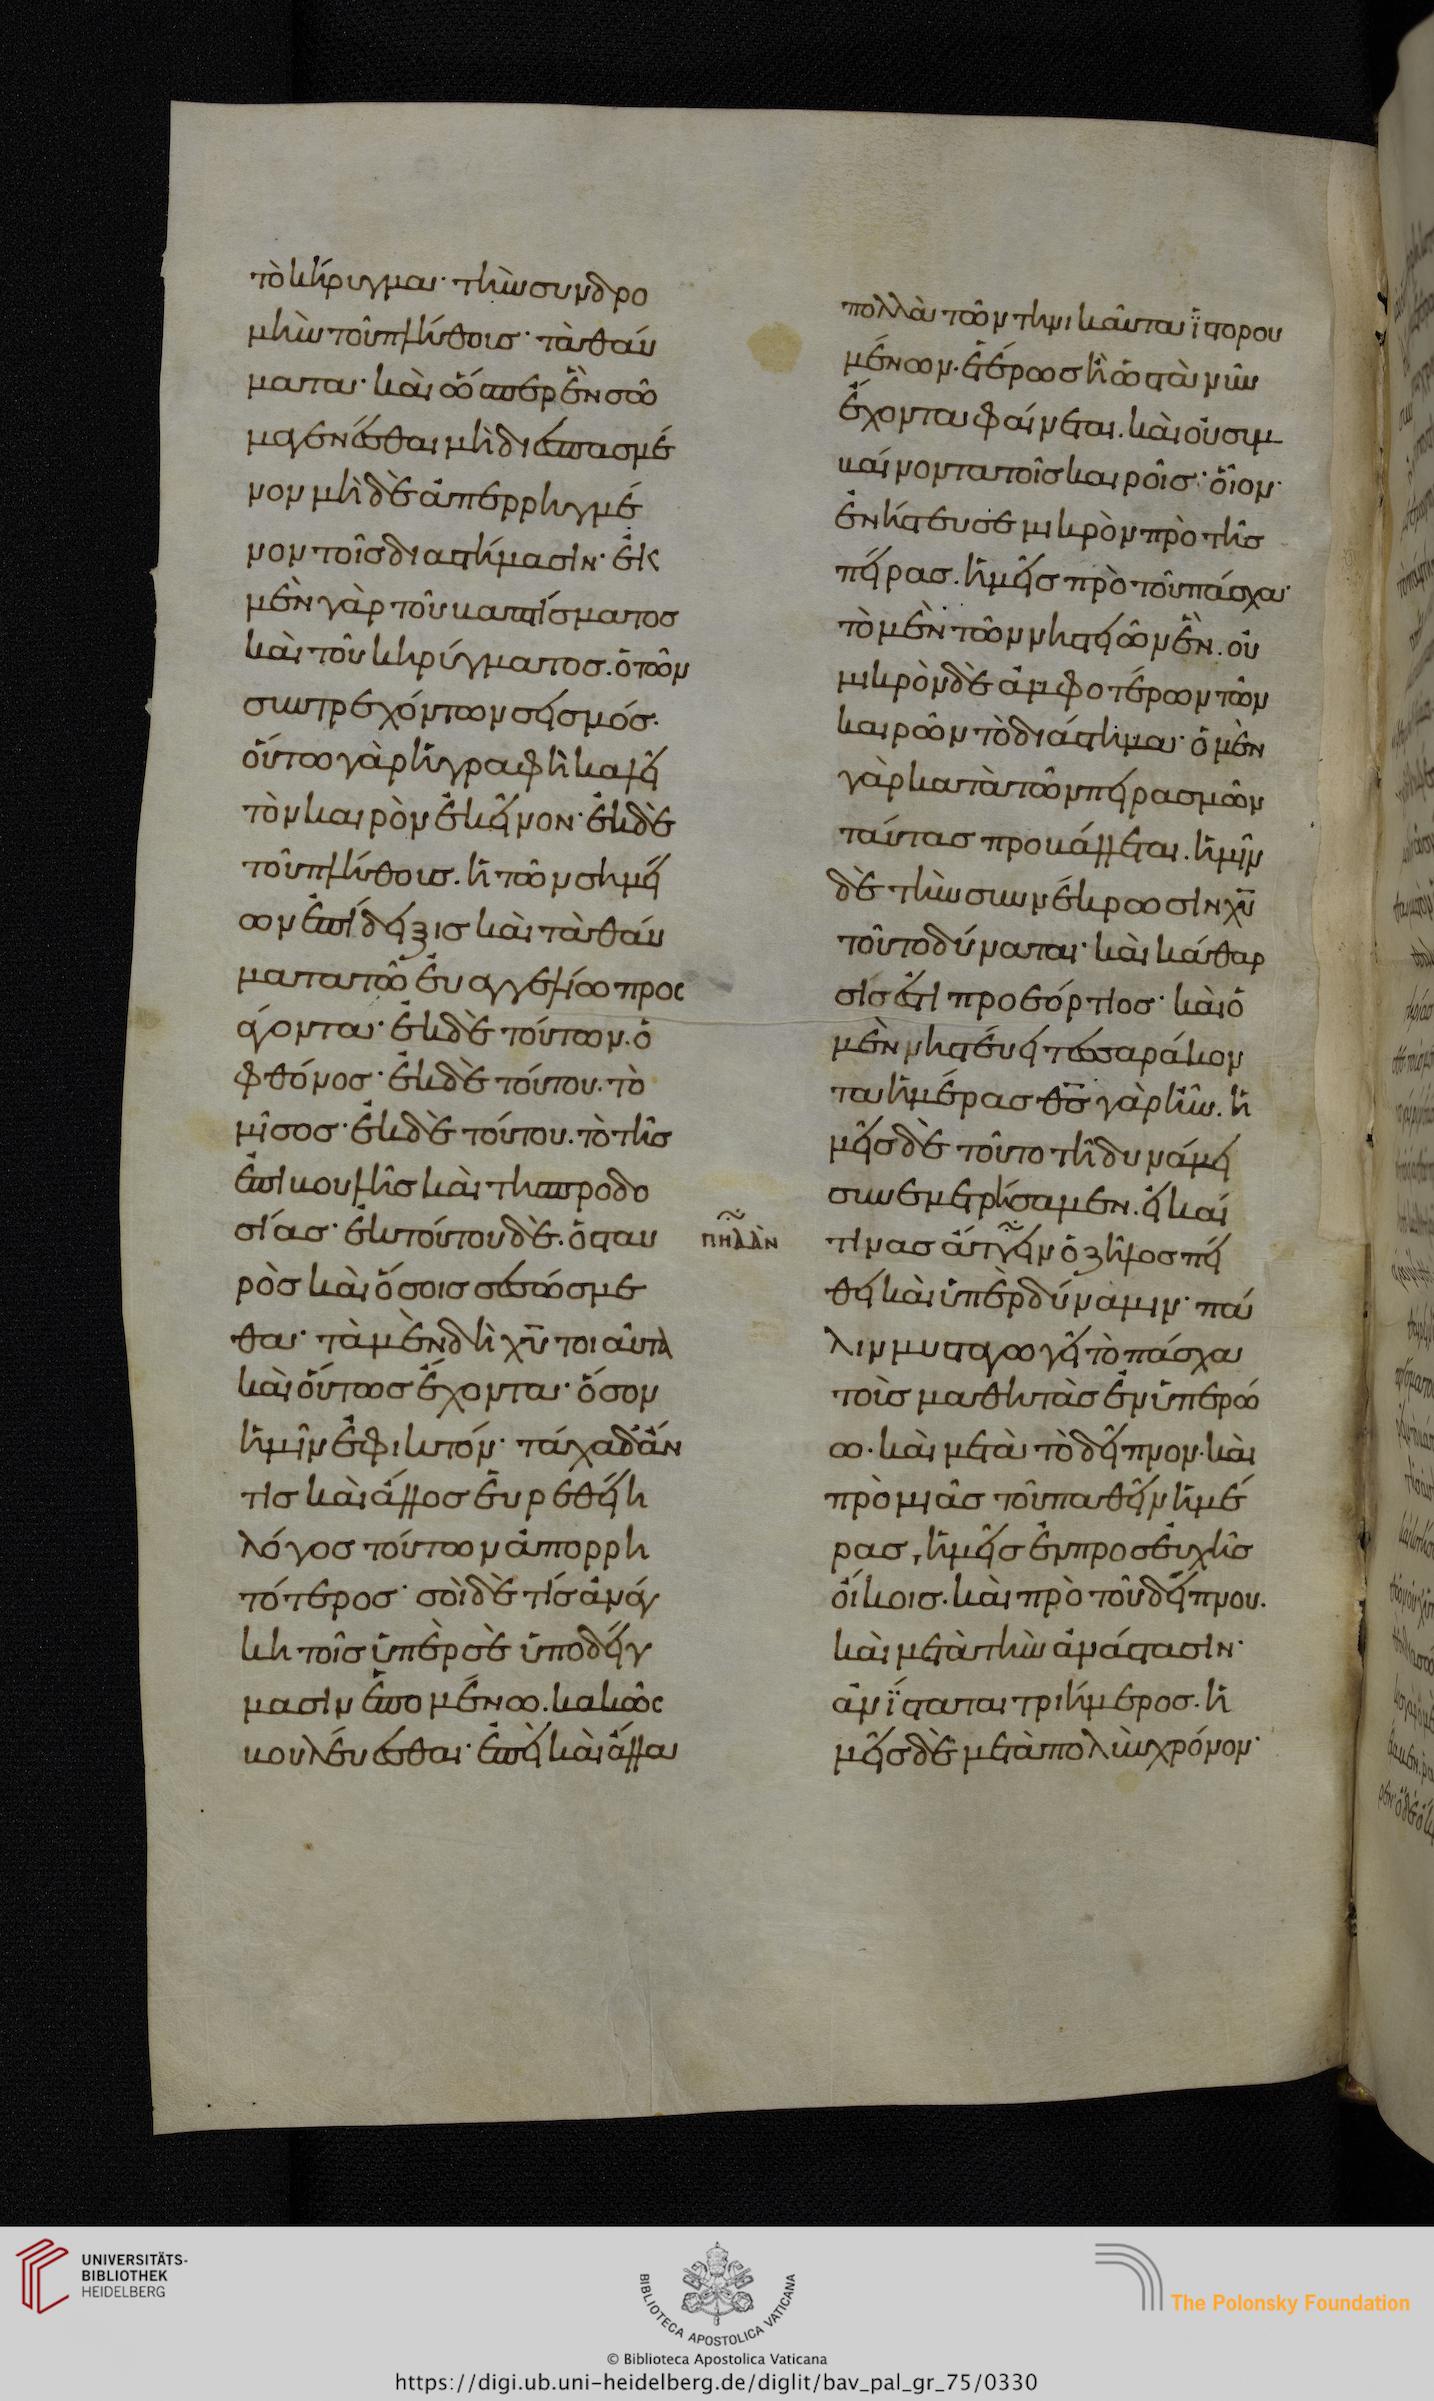 τὸ κήρυγμα· τὴν συνδρο
μὴν τοῦ πλήθους· τὰ θαύ
ματα· καὶ ὥσπερ ἓν σῶ
μα γενέσθαι μὴ διεσπασμέ
νον μὴ δὲ ἀπερρηγμέ
νον τοῖς διαστήμασιν· ἐκ
μὲν γὰρ τοῦ βαπτίσματος
καὶ τοῦ κηρύγματος. ὁ τῶν
συντρεχόντων σεισμός.
οὕτω γὰρ ἡ γραφὴ καλεῖ
τὸν καιρὸν ἐκεῖνον· ἐκ δὲ
τοῦ πλήθους. ἡ τῶν σημεί
ων ἐπίδειξις καὶ τὰ θαύ
ματα τῶ ἐυαγγελίω προσ
άγοντα· ἐκ δὲ τούτων. ὁ
φθόνος· ἐκ δὲ τούτου. τὸ
μῖσος· ἐκ δὲ τούτου. τὸ τῆς
ἐπιβουλῆς καὶ τῆς προδο
σίας· ἐκ τούτου δὲ. ὁ σταυ
ρὸς καὶ ὅσοις σεσώσμε
θα· τὰ μὲν δὴ χῦ τοιαῦτα
καὶ οὕτως ἔχοντα· ὅσον
ἡμῖν ἐφικτόν· τάχα δ' ἄν
τις καὶ ἄλλος ἑυρεθείη
λόγος τούτων ἀπορρη
τότερος· σοὶ δὲ τίς ἀνάγ
κη τοῖς ὑπὲρ σὲ ὑποδείγ
μασιν ἑπομένω. κακῶς
βουλέυεσθαι· ἐπεὶ καὶ ἄλλα
πηδᾶν
πολλὰ τῶν τηνικαῦτα ἱστορου
μένων. ἑτέρως ἢ ὡς τὰ νῦν
ἔχοντα φαίνεται. καὶ οὐ συμ
βαίνοντα τοῖς καιροῖς· οἷον·
ἐνήστευσε μικρὸν πρὸ τῆς
πείρας. ἡμεῖς πρὸ τοῦ πάσχα·
τὸ μὲν τῶν νηστειῶν ἕν. οὐ
μικρὸν δὲ ἀμφοτέρων τῶν
καιρῶν τὸ διάστημα· ὁ μὲν
γὰρ κατὰ τῶν πειρασμῶν
ταύτας προβάλλεται. ἡμῖν
δὲ τὴν συννέκρωσιν χῦ
τοῦτο δύναται· καὶ κάθαρ
σίς ἐστι προεόρτιος· καὶ ὁ
μὲν νηστέυει τεσσαράκον
τα ἡμέρας θς γὰρ ἦν. ἡ
μεῖς δὲ τοῦτο τῆ δυνάμει
συνεμετρήσαμεν. εἰ καί
τινας ἄττειν ὁ ζῆλος πεί
θει καὶ ὑπὲρ δύναμιν· πά
λιν μυσταγωγεῖ τὸ πάσχα
τοὺς μαθητὰς ἐν ὑπερώ
ω. καὶ μετὰ τὸ δεῖπνον. καὶ
πρὸ μιᾶς τοῦ παθεῖν ἡμέ
ρας, ἡμεῖς ἐν προσευχῆς
οἴκοις. καὶ πρὸ τοῦ δείπνου.
καὶ μετὰ τὴν ἀνάστασιν·
ἀνίσταται τριήμερος. ἡ
μεῖς δὲ μετὰ πολὺν χρόνον·
UNIVERSITÄTS-
BIBLIOTHEK
HEIDELBERG
BIBLIOTECA APOSTOLICA VATICANA
© Biblioteca Apostolica Vaticana
The Polonsky Foundation
https://digi.ub.uni-heidelberg.de/diglit/bav_pal_gr_75/0330